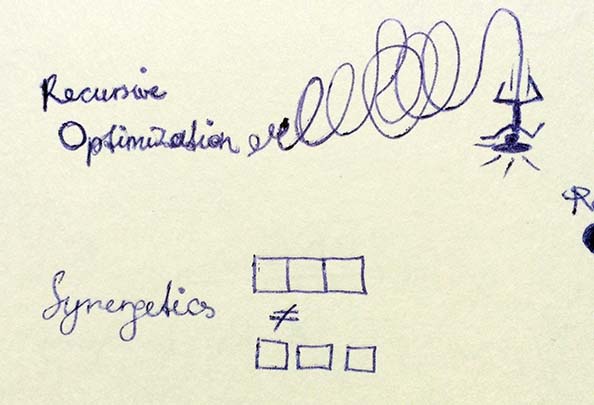 Recursive
Optimization
Synergetics
≠